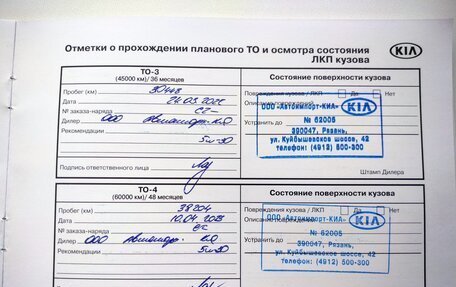 Отметки о прохождении планового ТО и осмотра состояния
ЛКП кузова
KIA
ТО-3
(45000 км)/ 36 месяцев
Состояние поверхности кузова
Пробег (км) 30448
Повреждения кузова / ЛКП Да Нет
Дата 24.03.
Описание
№ заказа-наряда
Дилер ООО
Устранить до
Рекомендации 5w-30
ООО «Автоимпорт-КИА» KIA
№ 62005
390047, Рязань,
ул. Куйбышевское шоссе, 42
телефон: (4912) 500-300
Подпись ответственного лица
Штамп Дилера
ТО-4
(60000 км)/ 48 месяцев
Состояние поверхности кузова
Пробег (км) 38204
Повреждения кузова / ЛКП Да Нет
Дата 10.04.2023
Описание
№ заказа-наряда
Дилер ООО
Устранить до
Рекомендации 5w-30
ООО «Автоимпорт-КИА» KIA
№ 62005
390047, Рязань,
ул. Куйбышевское шоссе, 42
телефон: (4912) 500-300